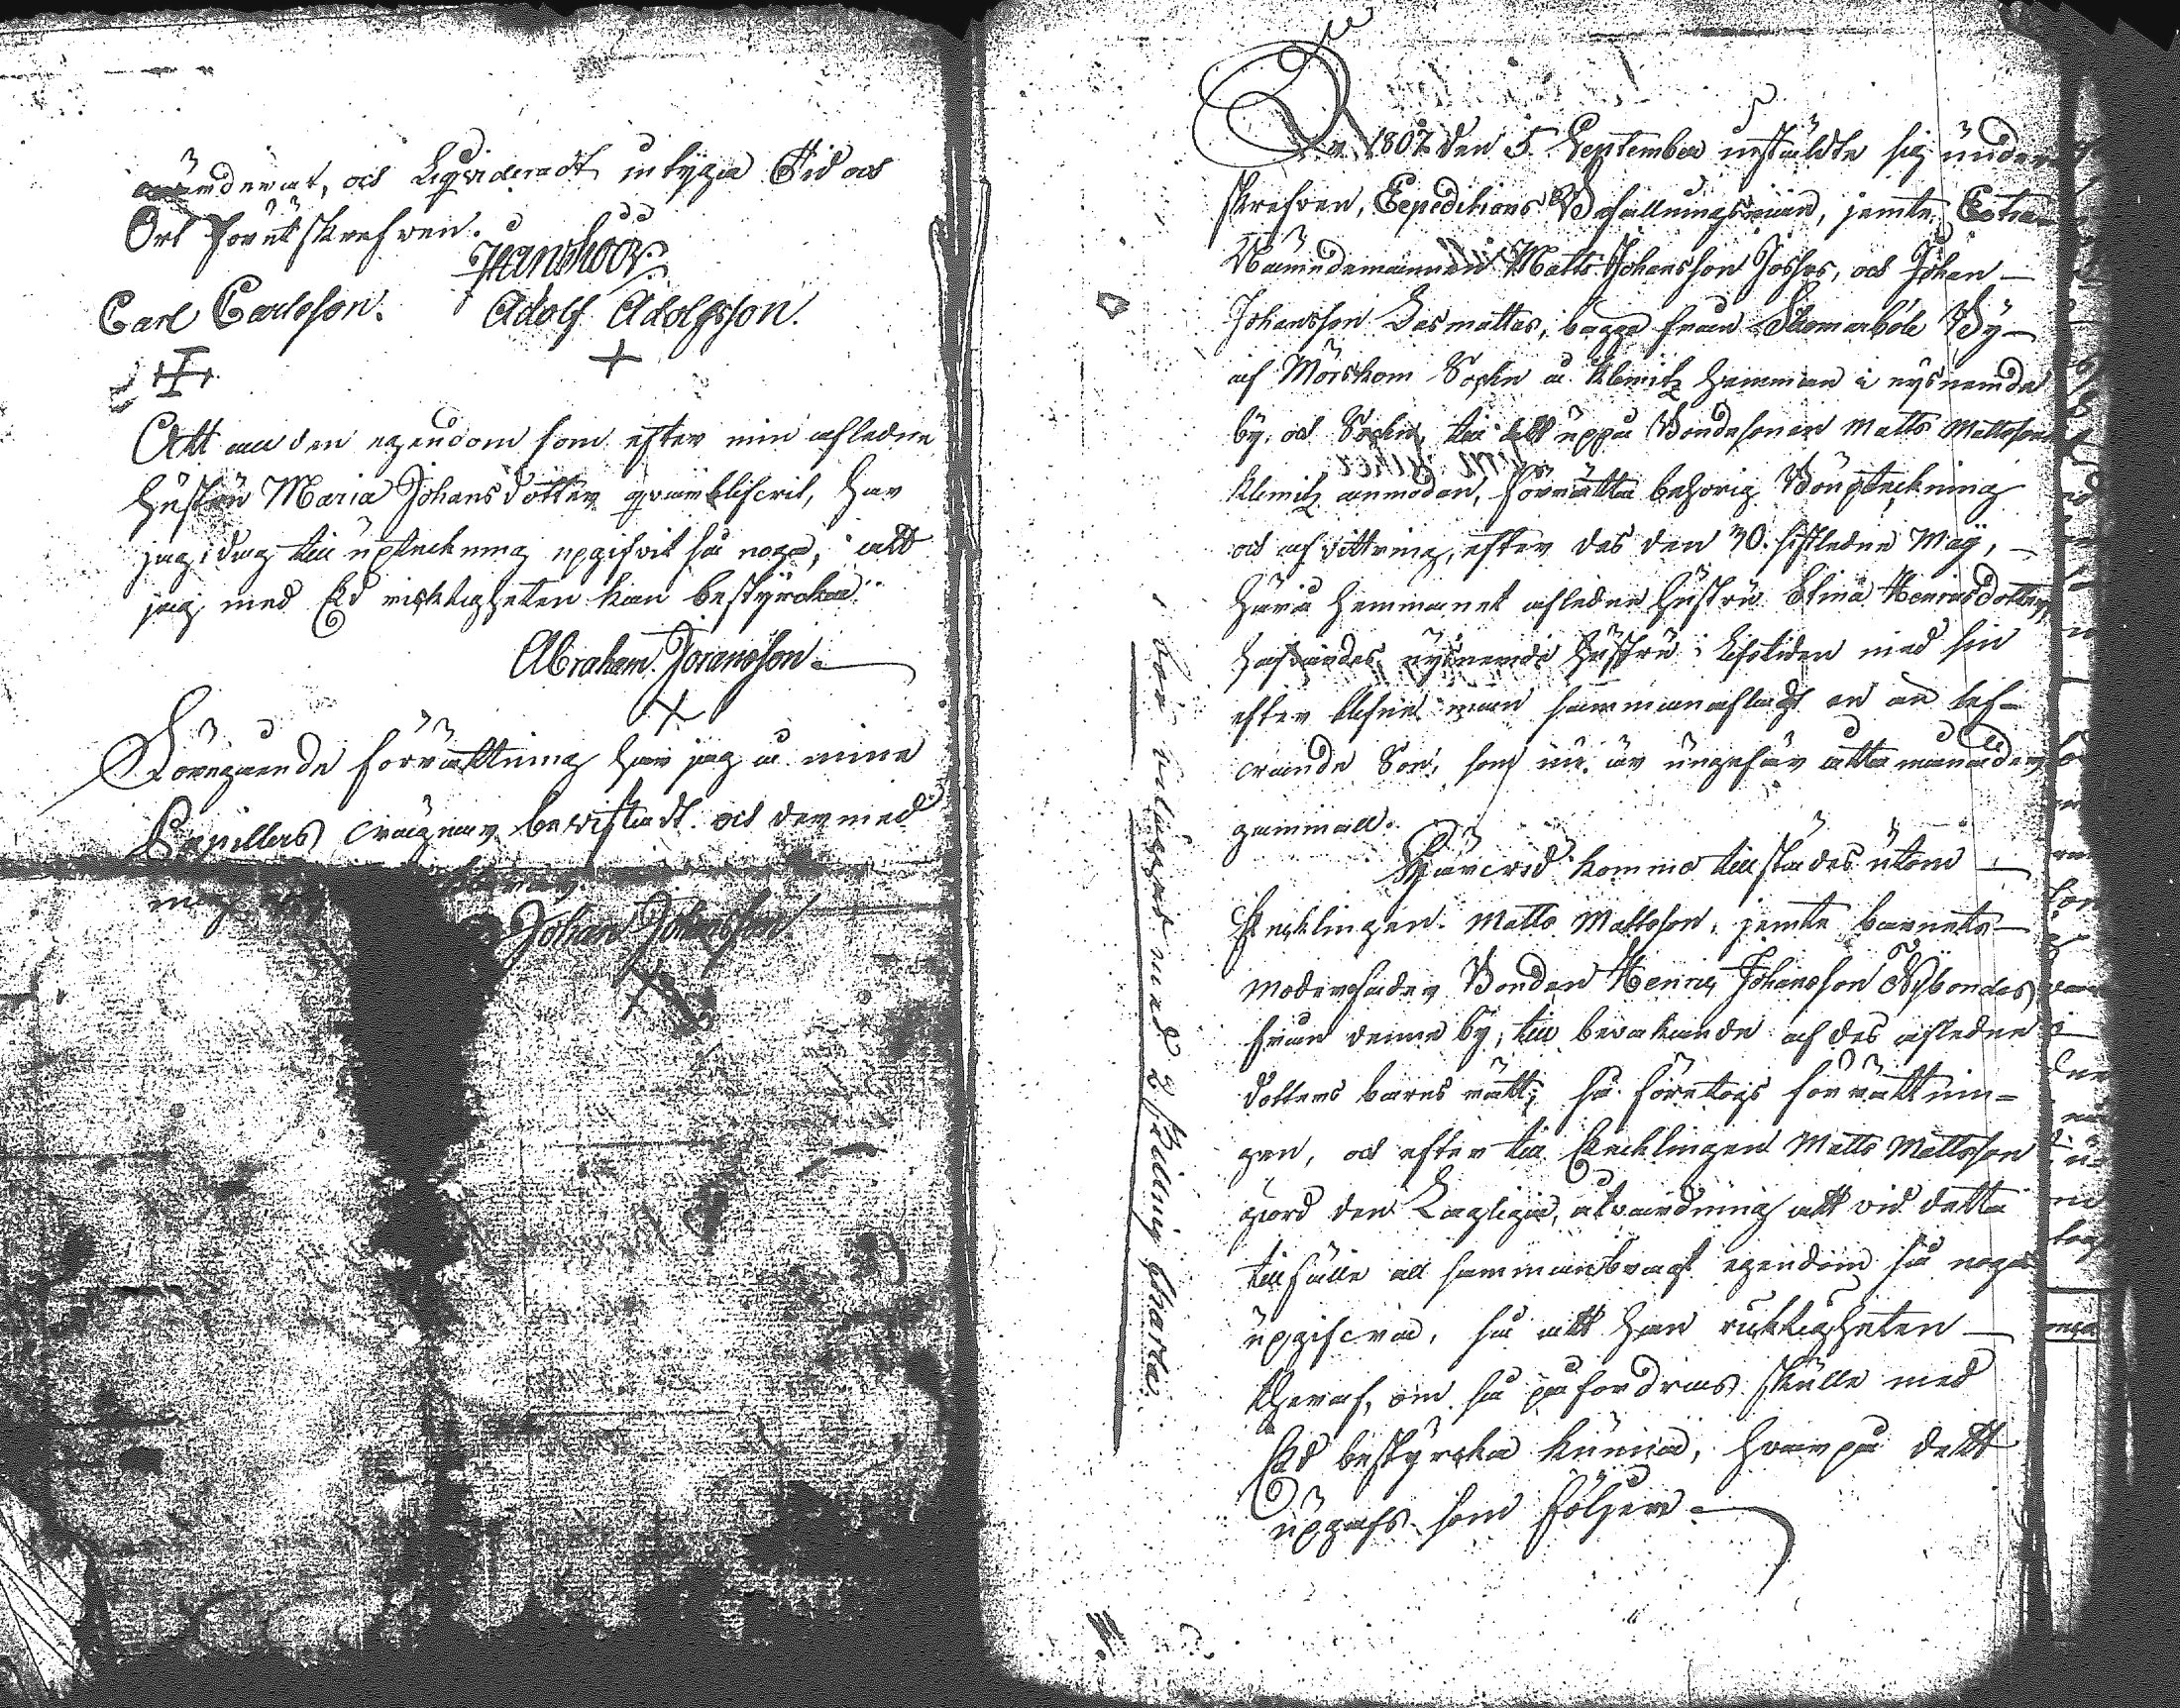 värderat, och Liqvideradt intyga Tid och
Ort förutskrefwen.
Carl Carlsson. Adolf Adolfsson.
Att all den egendom som efter min afledne
hustru Maria Johansdotter qvarblifvit, har
jag i dag till upteckning upgifvit så noga, att
jag med Ed ricktigheten kan bestyrcka.
Abraham Göransson.
Föregående förrättning har jag å mine
Pupillers vägnar bevistadt och dermed
Johan Johansson
År 1807 den 5 September instälde sig under
skrefven, Expeditions Befallningsman, jemte Extra
Nämndemannen Matts Johansson Josses, och Johan
Johansson Lasmattas, bägge från Skomarböle By
af Mörskom Sockn å Klemitz hemman i nysnemde
by och Sockn, till att uppå Bondesonen Matts Mattsson
Klemitz anmodan, förrätta behörig Bouptekning
och afvittring, efter des den 30. sistledne Maÿ,
här å hemmanet afledne hustru Stina Henricsdotter,
hafvandes nysnemde hustru i lifstiden med sin
efter lefne man sammanaflagt en än lef-
vande Son, som nu är ungefär åtta månader
gammall.
Härvid kommo tillstädes utom
Enklingen Matts Mattsson, jemte barnets
moderfader Bonden Henric Johansson Nybondas
från denne by, till bevakande af des afledne
dotters barns rätt; så företogs förrättnin-
gen, och efter till Encklingen Matts Mattsson
giord den Lagliga åtvardning att vid detta
tillfälle all sammanbragt egendom så noga
upgifva, så att han ricktigheten
theraf, om så påfordras skulle med
Ed bestyrcka kunna, hvarpå dett
upgafs som följer
belägges med 2 skilling charta.